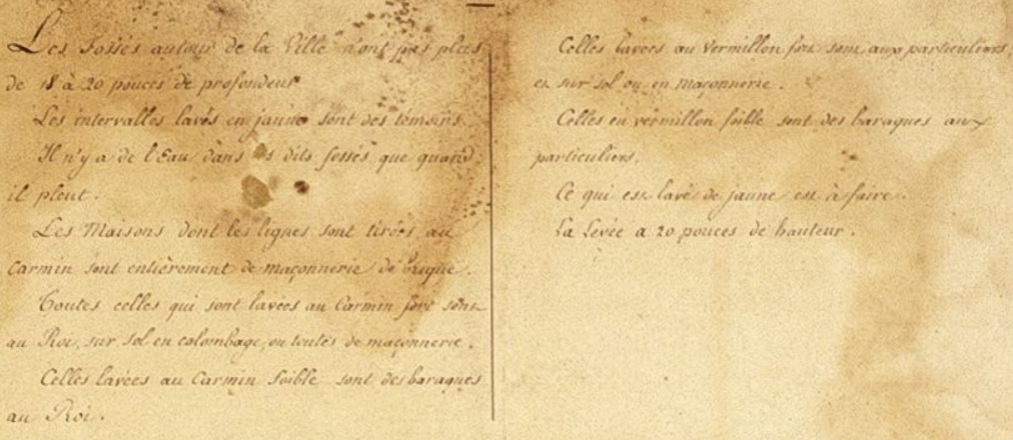 Les Fossés autour de la Ville n'ont pas plus
de 18 à 20 pouces de profondeur
Les intervalles lavés en jaune sont des témoins.
Il n'y a de l'Eau dans les dits fossés que quand
il pleut.
Les Maisons dont les lignes sont tirées au
Carmin sont entièrement de maçonnerie de brique.
Toutes celles qui sont lavées au Carmin fort sont
au Roi, sur sol en colombage, ou toutes de maçonnerie.
Celles lavées au Carmin foible sont des baraques
au Roi.
Celles lavées au Vermillon fort sont aux particuliers,
et sur sol ou en maçonnerie.
Celles en vermillon foible sont des baraques aux
particuliers.
Ce qui est lavé de jaune est à faire.
La Levée a 20 pouces de hauteur.